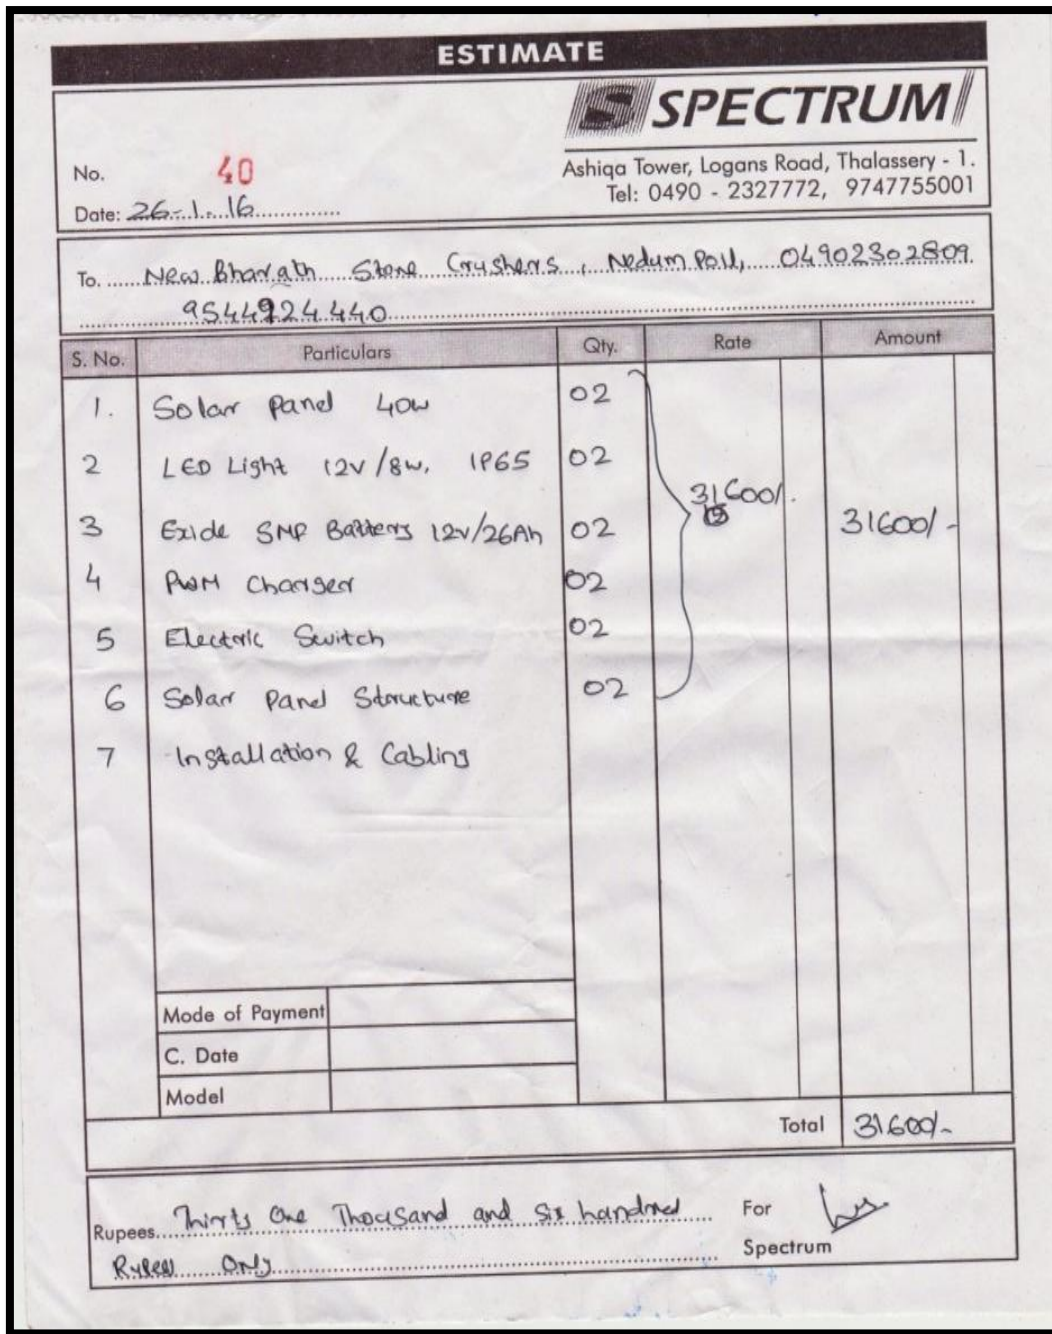 ESTIMATE
S SPECTRUM
Ashiqa Tower, Logans Road, Thalassery - 1.
Tel: 0490 - 2327772, 9747755001
No. 40
Date: 26-1-16
To. New Bharath Stone Crushers, Nedumpoll, 04902302809.
9544924440
S. No. Particulars Qty. Rate Amount
1. Solar Panel 40w 02
2 LED Light 12v/8w. IP65 02
31600/.
3 Exide SMF Battery 12v/26Ah 02 31600/-
4 PWM Charger 02
5 Electric Switch 02
6 Solar Panel Structure 02
7 Installation & Cabling
Mode of Payment
C. Date
Model
Total 31600/-
Rupees Thirty One Thousand and Six handred For
Rupees Only Spectrum